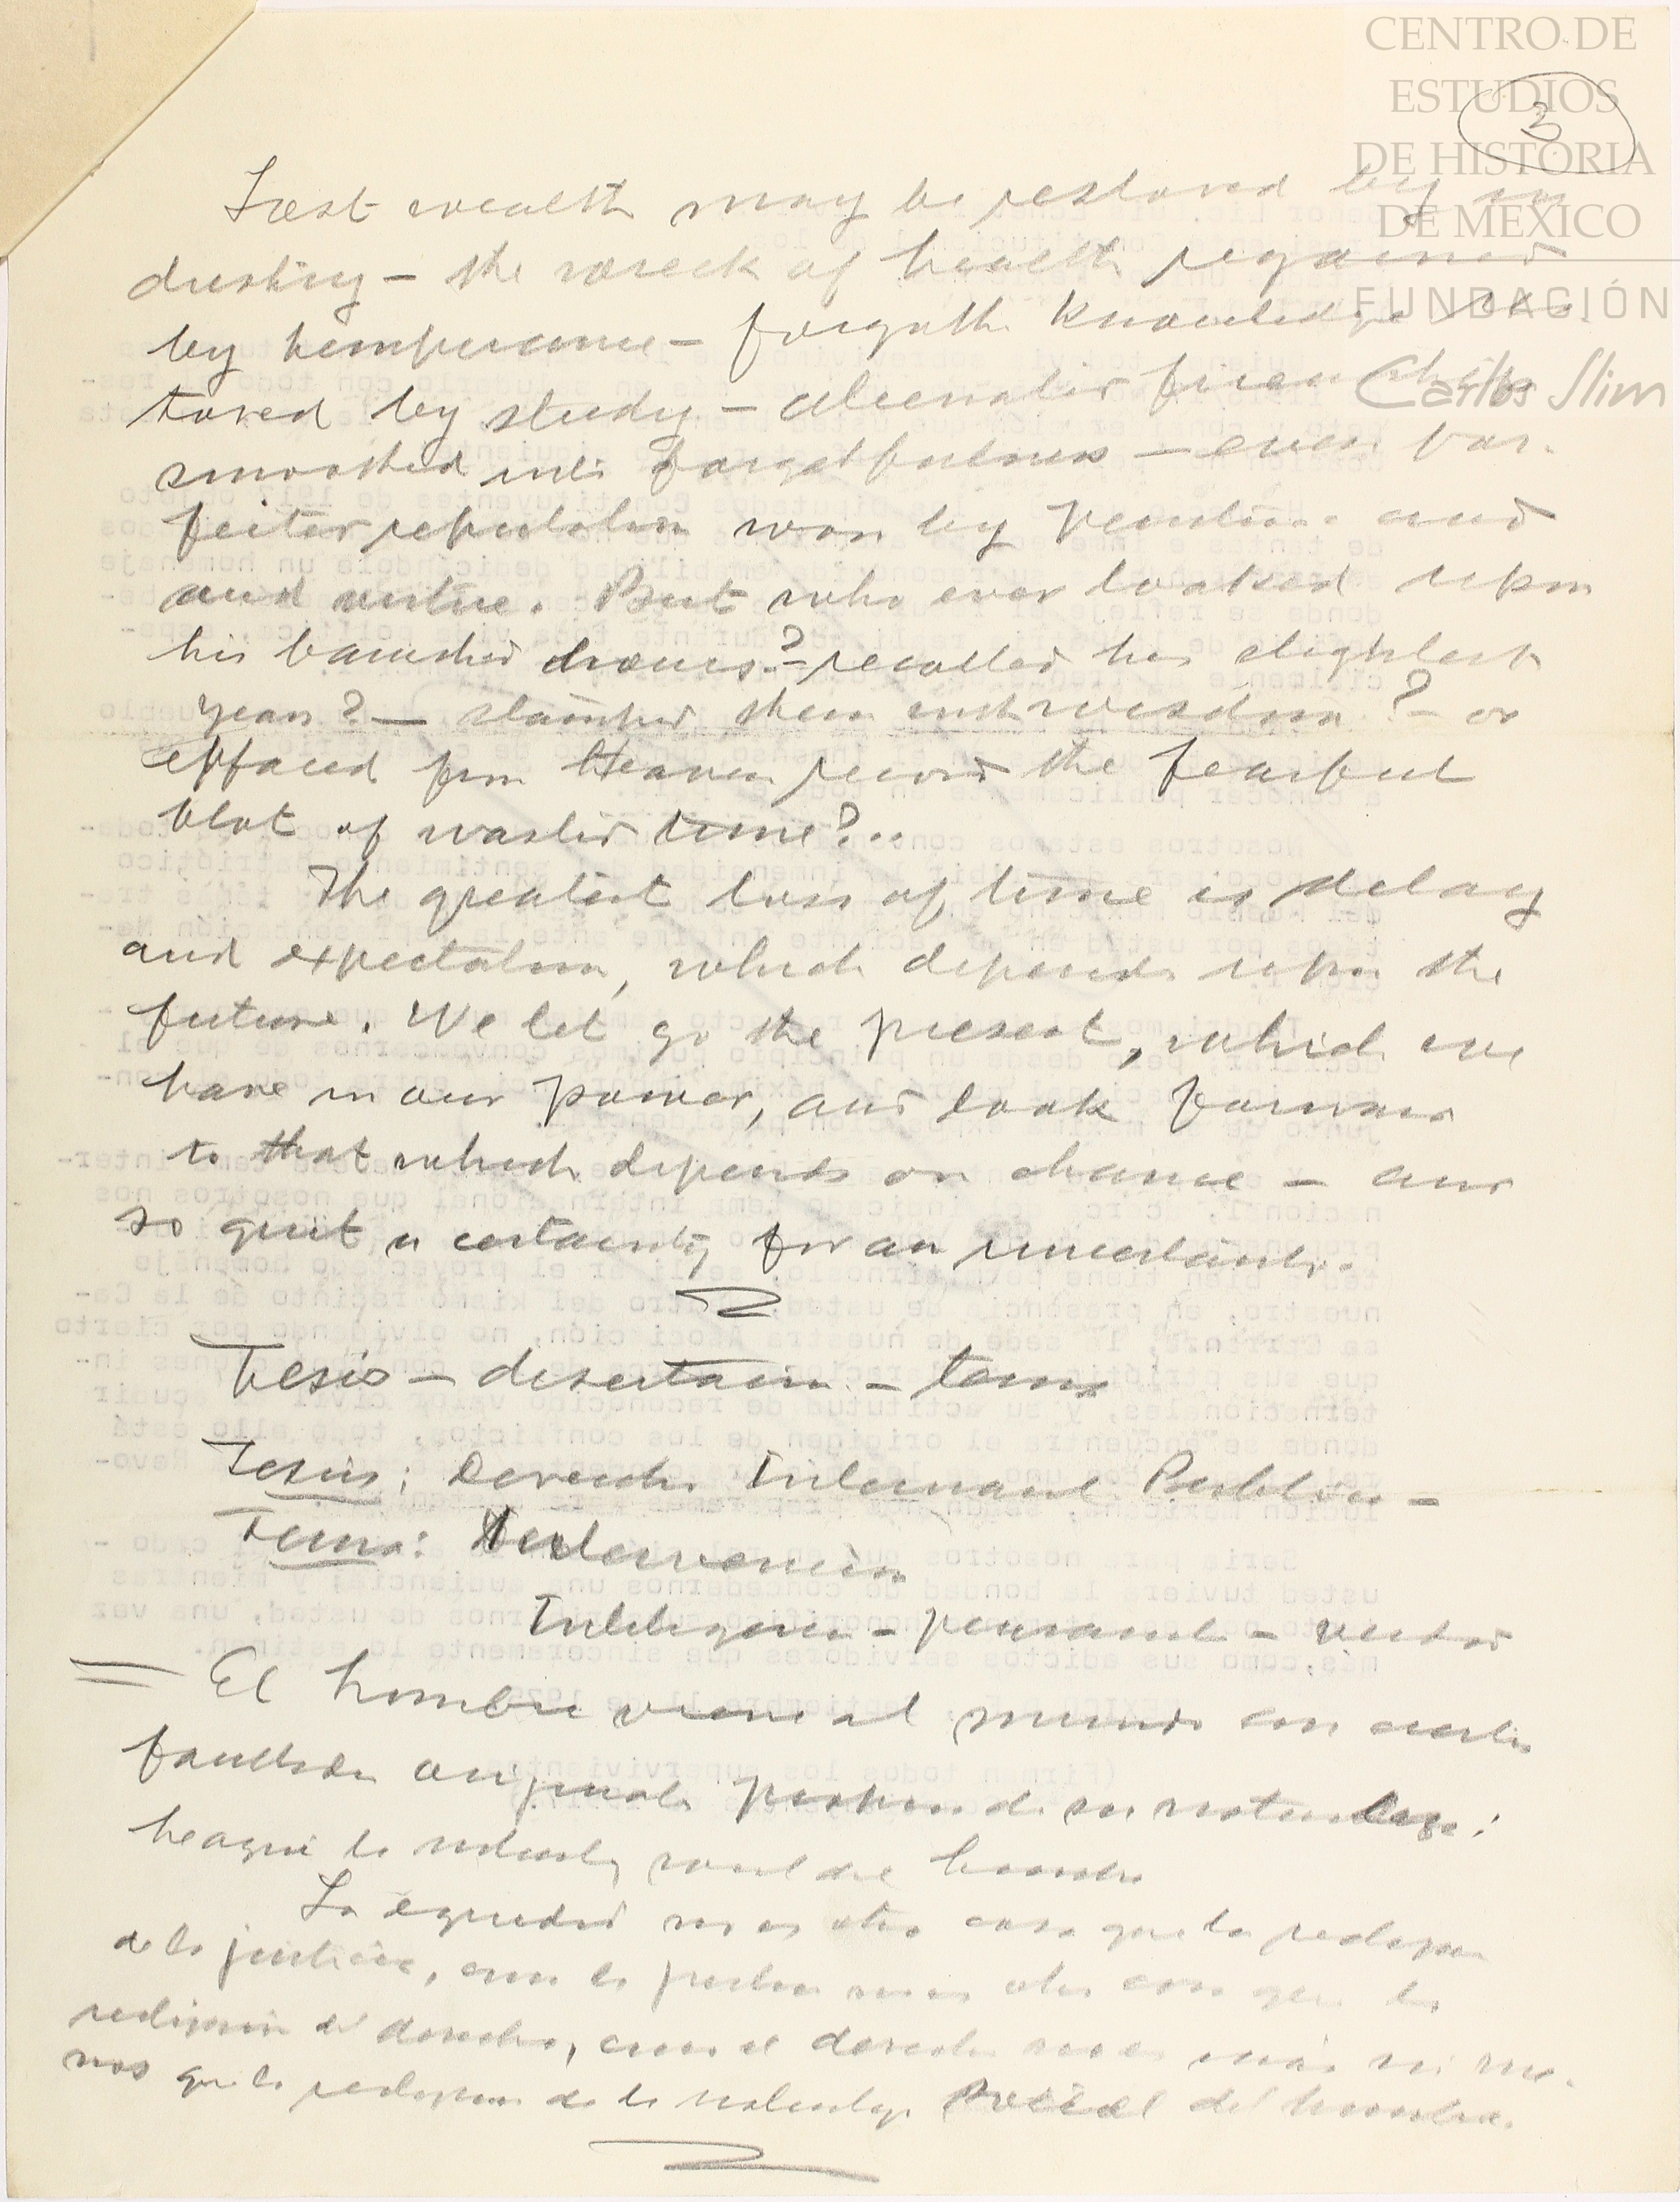 CENTRO DE
ESTUDIOS
DE HISTORIA
DE MEXICO
FUNDACIÓN
Carlos Slim
3
Lost wealth may be restored by in
dustry – the wreck of health regained
by temperance – forgotten knowledge res
tored by study – alienated friendship
smoothed into forgetfulness – even for-
feited reputation won by penitence and
and virtue. But who ever looked upon
his vanished hours? – recalled his slighted
years? – stamped them with wisdom? – or
effaced from Heaven record the fearful
blot of wasted time?..
The greatest loss of time is delay
and expectation, which depends upon the
future. We let go the present, which we
have in our power, and look forward
to that which depends on chance – and
so quit a certainty for an uncertainty.
Tesis – disertación – tema
Tesis: Derecho Internacional Público –
Tema: Intervención
Inteligencia – pensamiento –
= El hombre viene al mundo con ciertas
facultades originales propias de su naturaleza:
he aqui la naturaleza social del hombre
La equidad no es otra cosa que la
de la justicia, como la justicia no es otra cosa que la
del derecho, como el derecho no es más ni me-
nos que la de la naturaleza social del hombre.